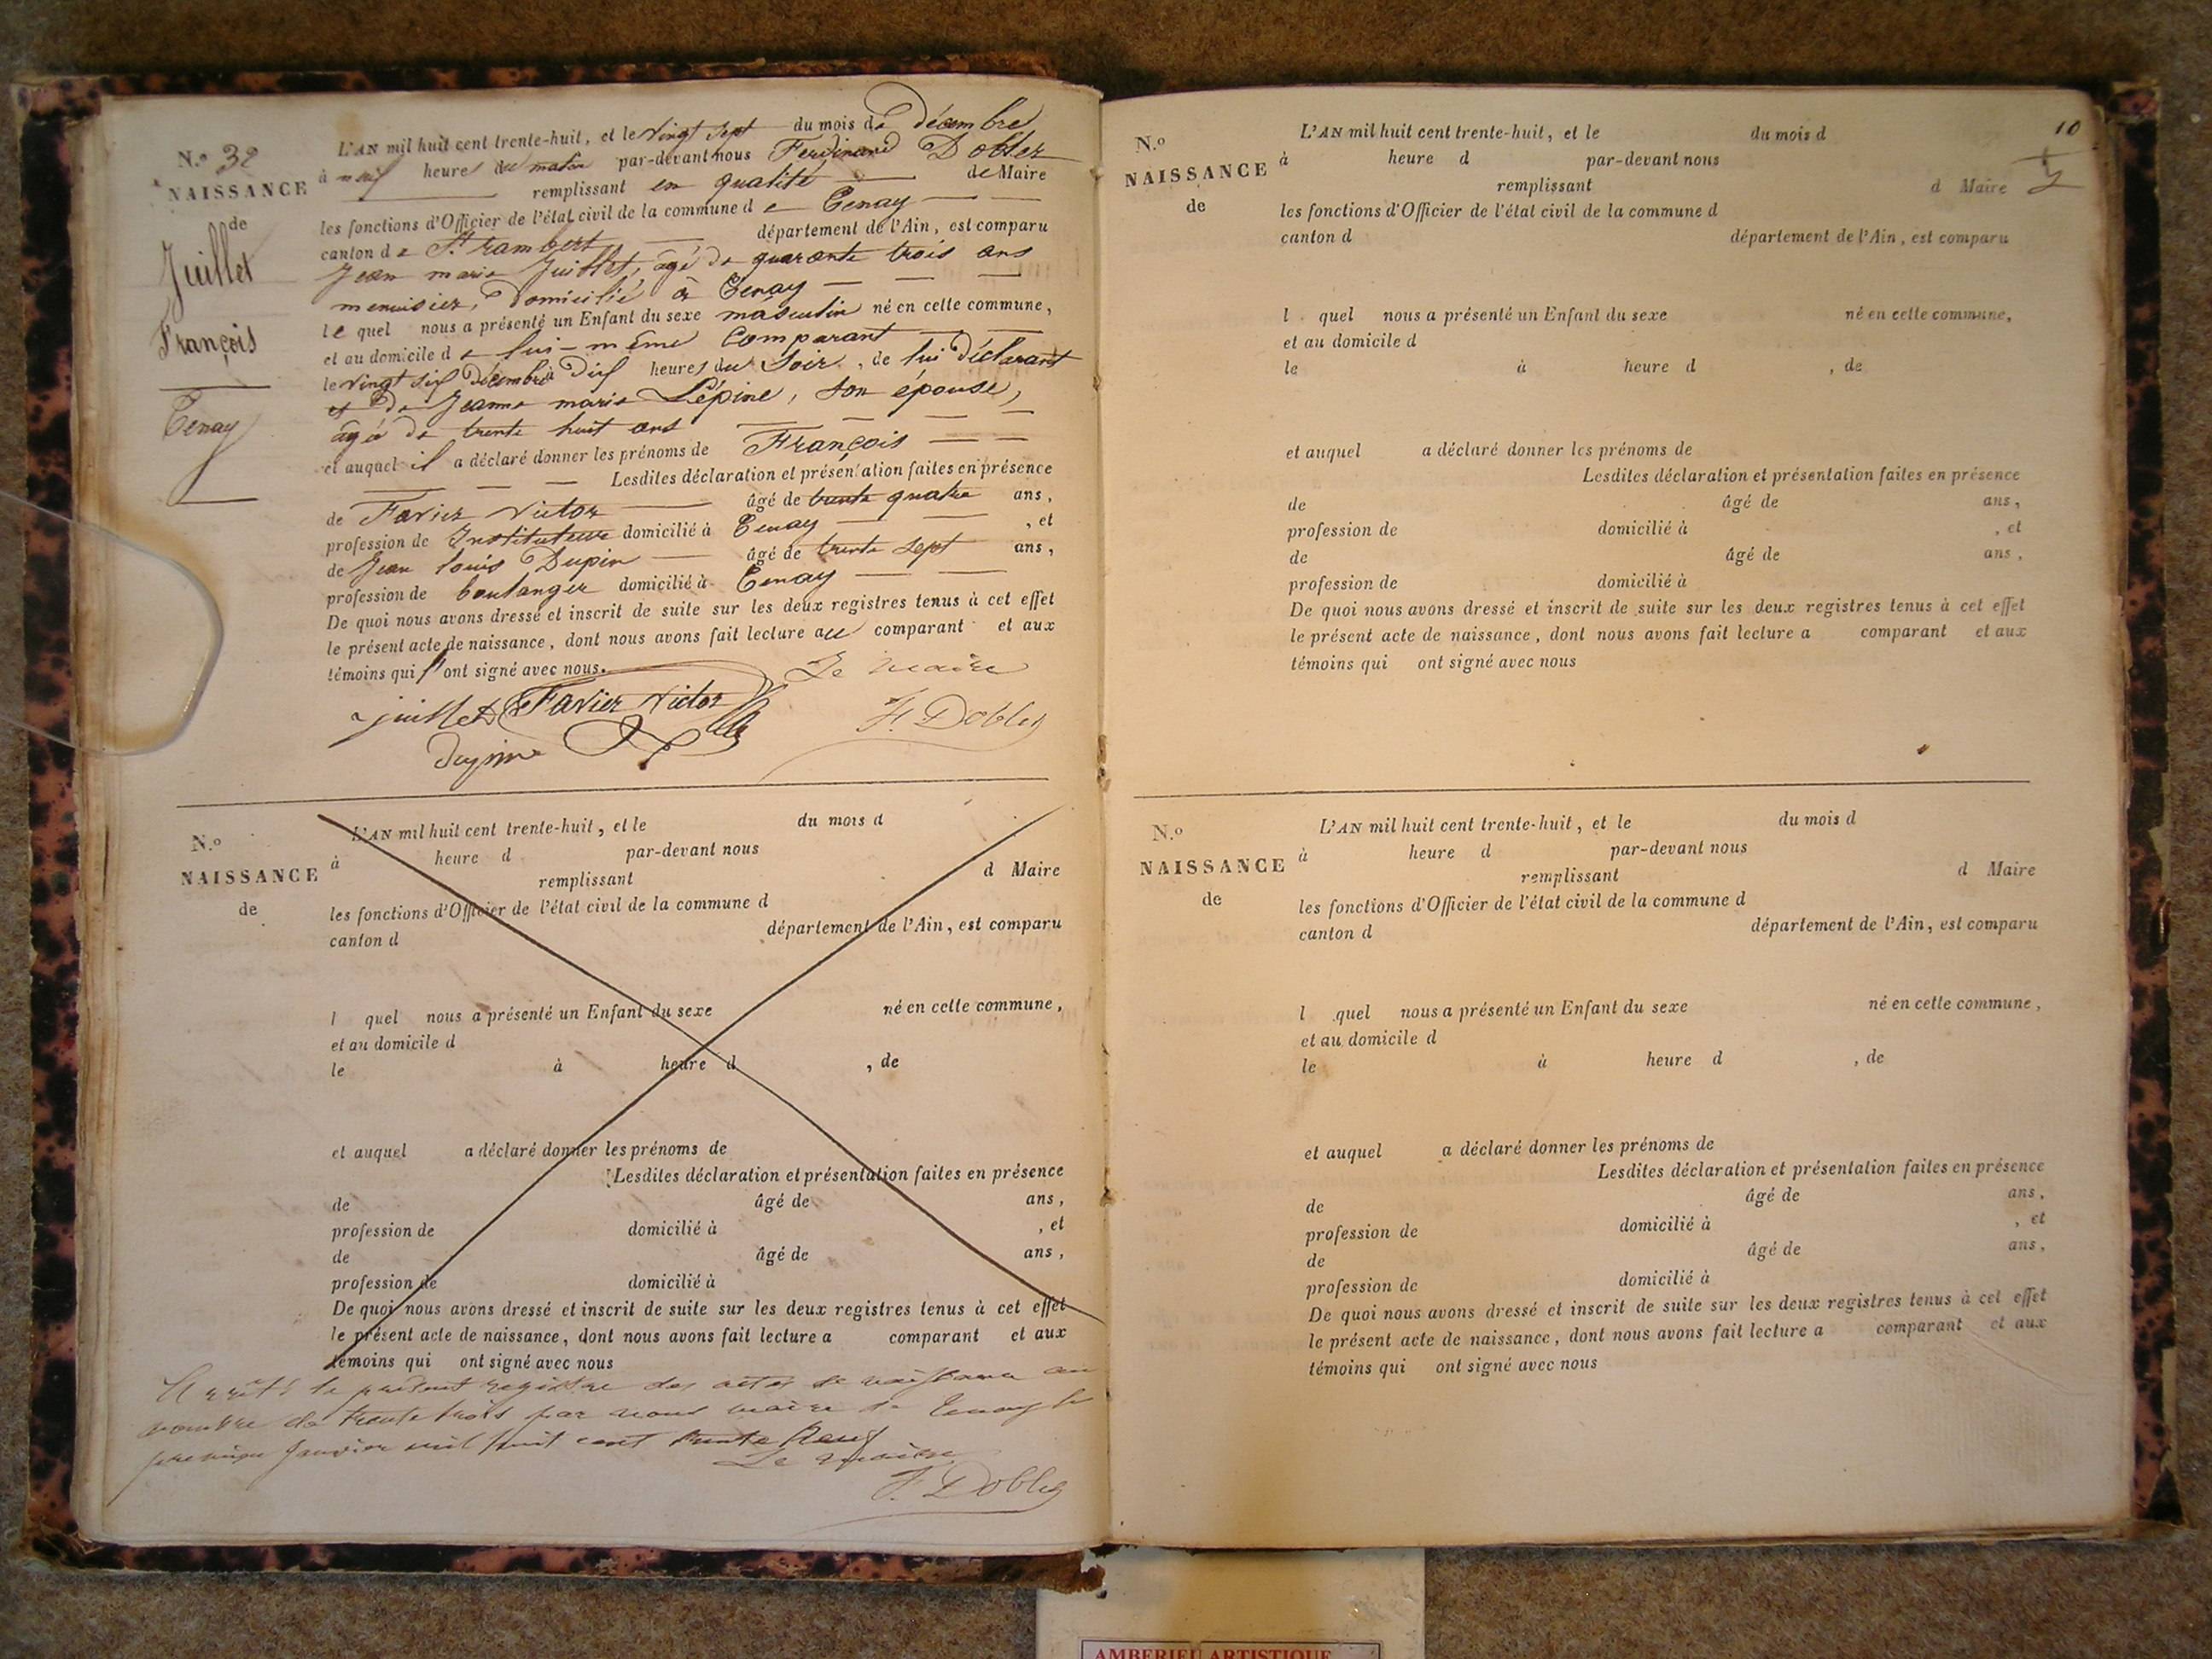 N.º 32
NAISSANCE
de
Juillet
François
Tenay
L'AN mil huit cent trente-huit, et le vingt sept du mois de décembre
à neuf heures du matin par-devant nous Ferdinand Dobler
remplissant en qualité de Maire
les fonctions d'Officier de l'état civil de la commune de Tenay
canton de St rambert département de l'Ain, est comparu
Jean marie Juillet, agé de quarante trois ans
menuisier, domicilié à Tenay
lequel nous a présenté un Enfant du sexe masculin né en cette commune,
et au domicile de lui-même Comparant
le vingt six décembre à dix heures du Soir, de lui déclarant
et de Jeanne marie Lépine, son épouse,
agée de trente huit ans
et auquel il a déclaré donner les prénoms de François
Lesdites déclaration et présentation faites en présence
de Favier victor âgé de trente quatre ans,
profession de Instituteur domicilié à Tenay, et
de Jean louis Dupin âgé de trente sept ans,
profession de boulanger domicilié à Tenay
De quoi nous avons dressé et inscrit de suite sur les deux registres tenus à cet effet
le présent acte de naissance, dont nous avons fait lecture au comparant et aux
témoins qui l'ont signé avec nous.
Le maire
juillet Favier victor F. Dobler
N.º
NAISSANCE
de
L'AN mil huit cent trente-huit, et le du mois d
à heure d par-devant nous
remplissant d Maire
les fonctions d'Officier de l'état civil de la commune d
canton d département de l'Ain, est comparu
l quel nous a présenté un Enfant du sexe né en cette commune,
et au domicile d
le à heure d , de
et auquel a déclaré donner les prénoms de
Lesdites déclaration et présentation faites en présence
de âgé de ans,
profession de domicilié à , et
de âgé de ans,
profession de domicilié à
De quoi nous avons dressé et inscrit de suite sur les deux registres tenus à cet effet
le présent acte de naissance, dont nous avons fait lecture a comparant et aux
témoins qui ont signé avec nous
Arrêté le présent registre des actes de naissance au
nombre de trente trois par nous maire de Tenay le
premier Janvier mil huit cent trente Neuf
Le maire
F. Dobler
10
N.º
NAISSANCE
de
L'AN mil huit cent trente-huit, et le du mois d
à heure d par-devant nous
remplissant d Maire
les fonctions d'Officier de l'état civil de la commune d
canton d département de l'Ain, est comparu
l quel nous a présenté un Enfant du sexe né en cette commune,
et au domicile d
le à heure d , de
et auquel a déclaré donner les prénoms de
Lesdites déclaration et présentation faites en présence
de âgé de ans,
profession de domicilié à , et
de âgé de ans,
profession de domicilié à
De quoi nous avons dressé et inscrit de suite sur les deux registres tenus à cet effet
le présent acte de naissance, dont nous avons fait lecture a comparant et aux
témoins qui ont signé avec nous
N.º
NAISSANCE
de
L'AN mil huit cent trente-huit, et le du mois d
à heure d par-devant nous
remplissant d Maire
les fonctions d'Officier de l'état civil de la commune d
canton d département de l'Ain, est comparu
l quel nous a présenté un Enfant du sexe né en cette commune,
et au domicile d
le à heure d , de
et auquel a déclaré donner les prénoms de
Lesdites déclaration et présentation faites en présence
de âgé de ans,
profession de domicilié à , et
de âgé de ans,
profession de domicilié à
De quoi nous avons dressé et inscrit de suite sur les deux registres tenus à cet effet
le présent acte de naissance, dont nous avons fait lecture a comparant et aux
témoins qui ont signé avec nous
AMBERIEU ARTISTIQUE